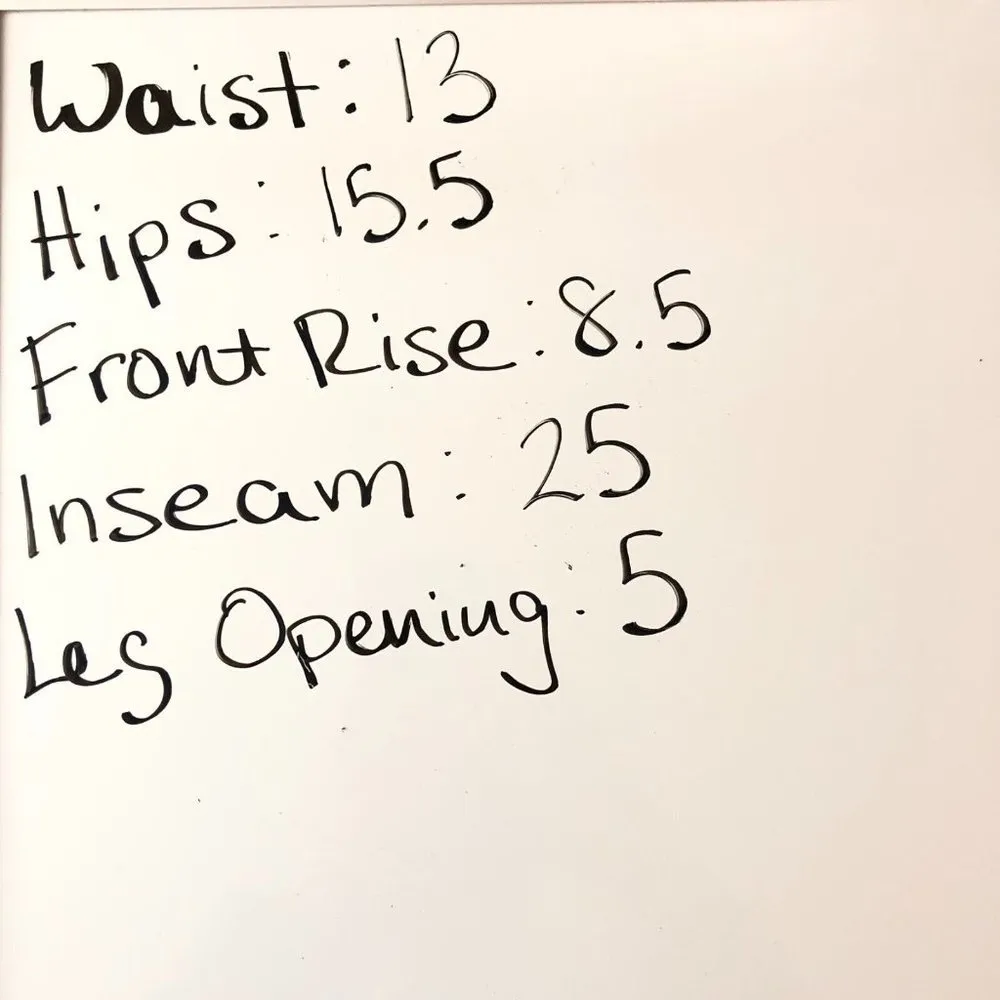 Waist: 13
Hips: 15.5
Front Rise: 8.5
Inseam: 25
Leg Opening: 5